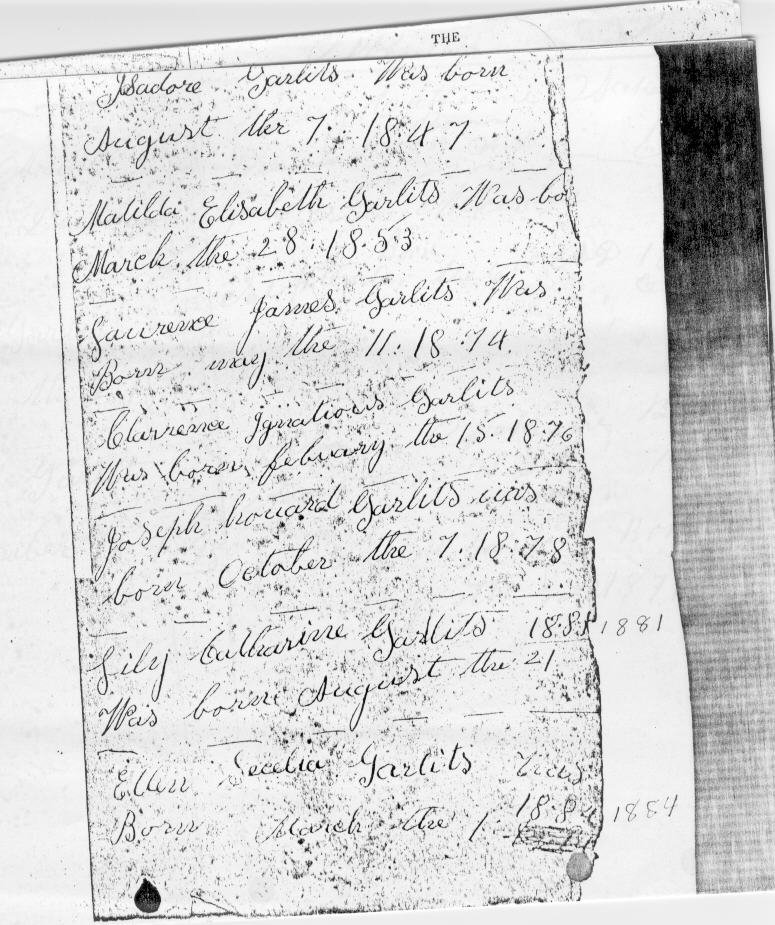 THE
Isadore Garlits Was born
August the 7. 1847
Matilda Elisabeth Garlits Was bo
March the 28. 1853
Laurence James Garlits Was
Born may the 11. 1874
Clarrence Ignatious Garlits
Was born febuary the 15. 1876
Joseph houard Garlits was
born October the 7. 1878
Lily Catharine Garlits 1881 1881
Was borne August the 21
Ellen Secelia Garlits Was
Born March the 1 1884 1884